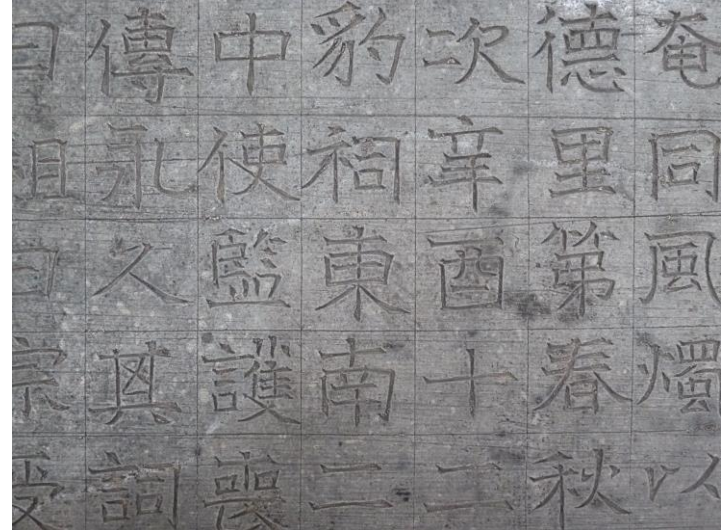 奄同風燭以
德里第春秋
次辛酉十二
豹祠東南二
中使監護喪
傳永久其詞
曰祖曰宗受